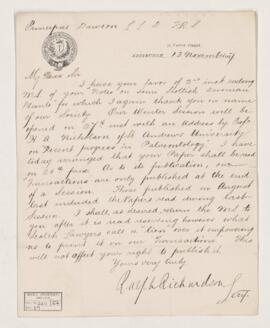 Principal Dawson L L D F R S
13 November
My Dear Sir
I have your favor of 2nd inst enclosing
MS of your "Notes on some Scottish Devonian
Plants" for which I again thank you in name
of our Society. Our Winter Session will be
opened on 27th inst with an Address by Prof
H A Nicholson of St Andrews University
on "Recent progress in Palæontology". I have
today arranged that your Paper shall be read
on 20th prox. As to its publication, our
Transactions are only published at the end
of a Session. Those published in August
last included the Papers read during last
Session. I shall, as desired, return the MS to
you after it is read reserving however what
Scotch Lawyers call a "lien" over it empowering
us to print it in our Transactions. This
will not affect your right to publish it.
Yours very truly
Ralph Richardson